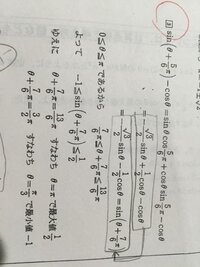 ③ sin(θ+5/6π)−cosθ=sinθcos5/6π+cosθsin5/6π−cosθ
=−√3/2sinθ+1/2cosθ−cosθ
=−√3/2sinθ−1/2cosθ=sin(θ+7/6π)
0≦θ≦πであるから 7/6π≦θ+7/6π≦13/6π
よって −1≦sin(θ+7/6π)≦1/2
ゆえに θ+7/6π=13/6π すなわち θ=πで最大値1/2
θ+7/6π=3/2π すなわち θ=π/3で最小値−1